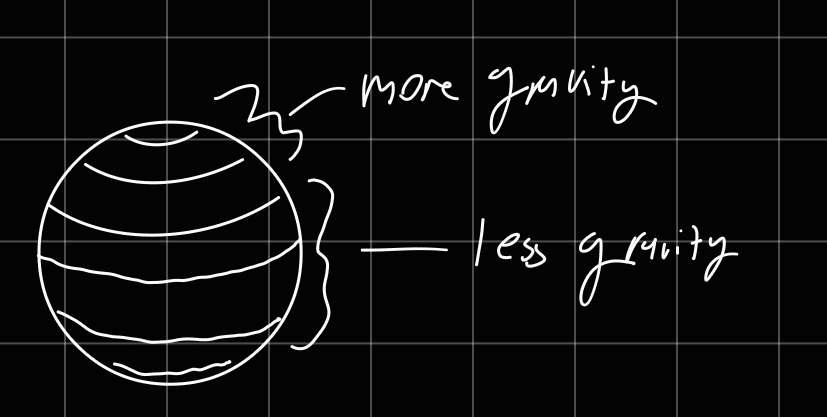 more gravity
less gravity